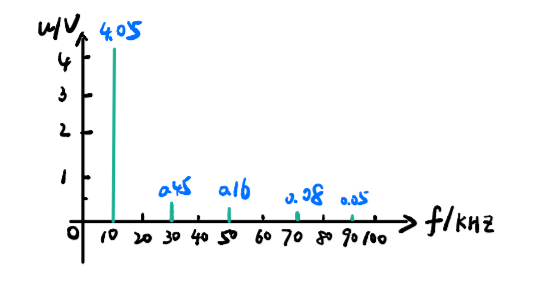 u/V
4.05
4
3
2
1
0.45
0.16
0.08
0.05
0 10 20 30 40 50 60 70 80 90 100
f/kHz